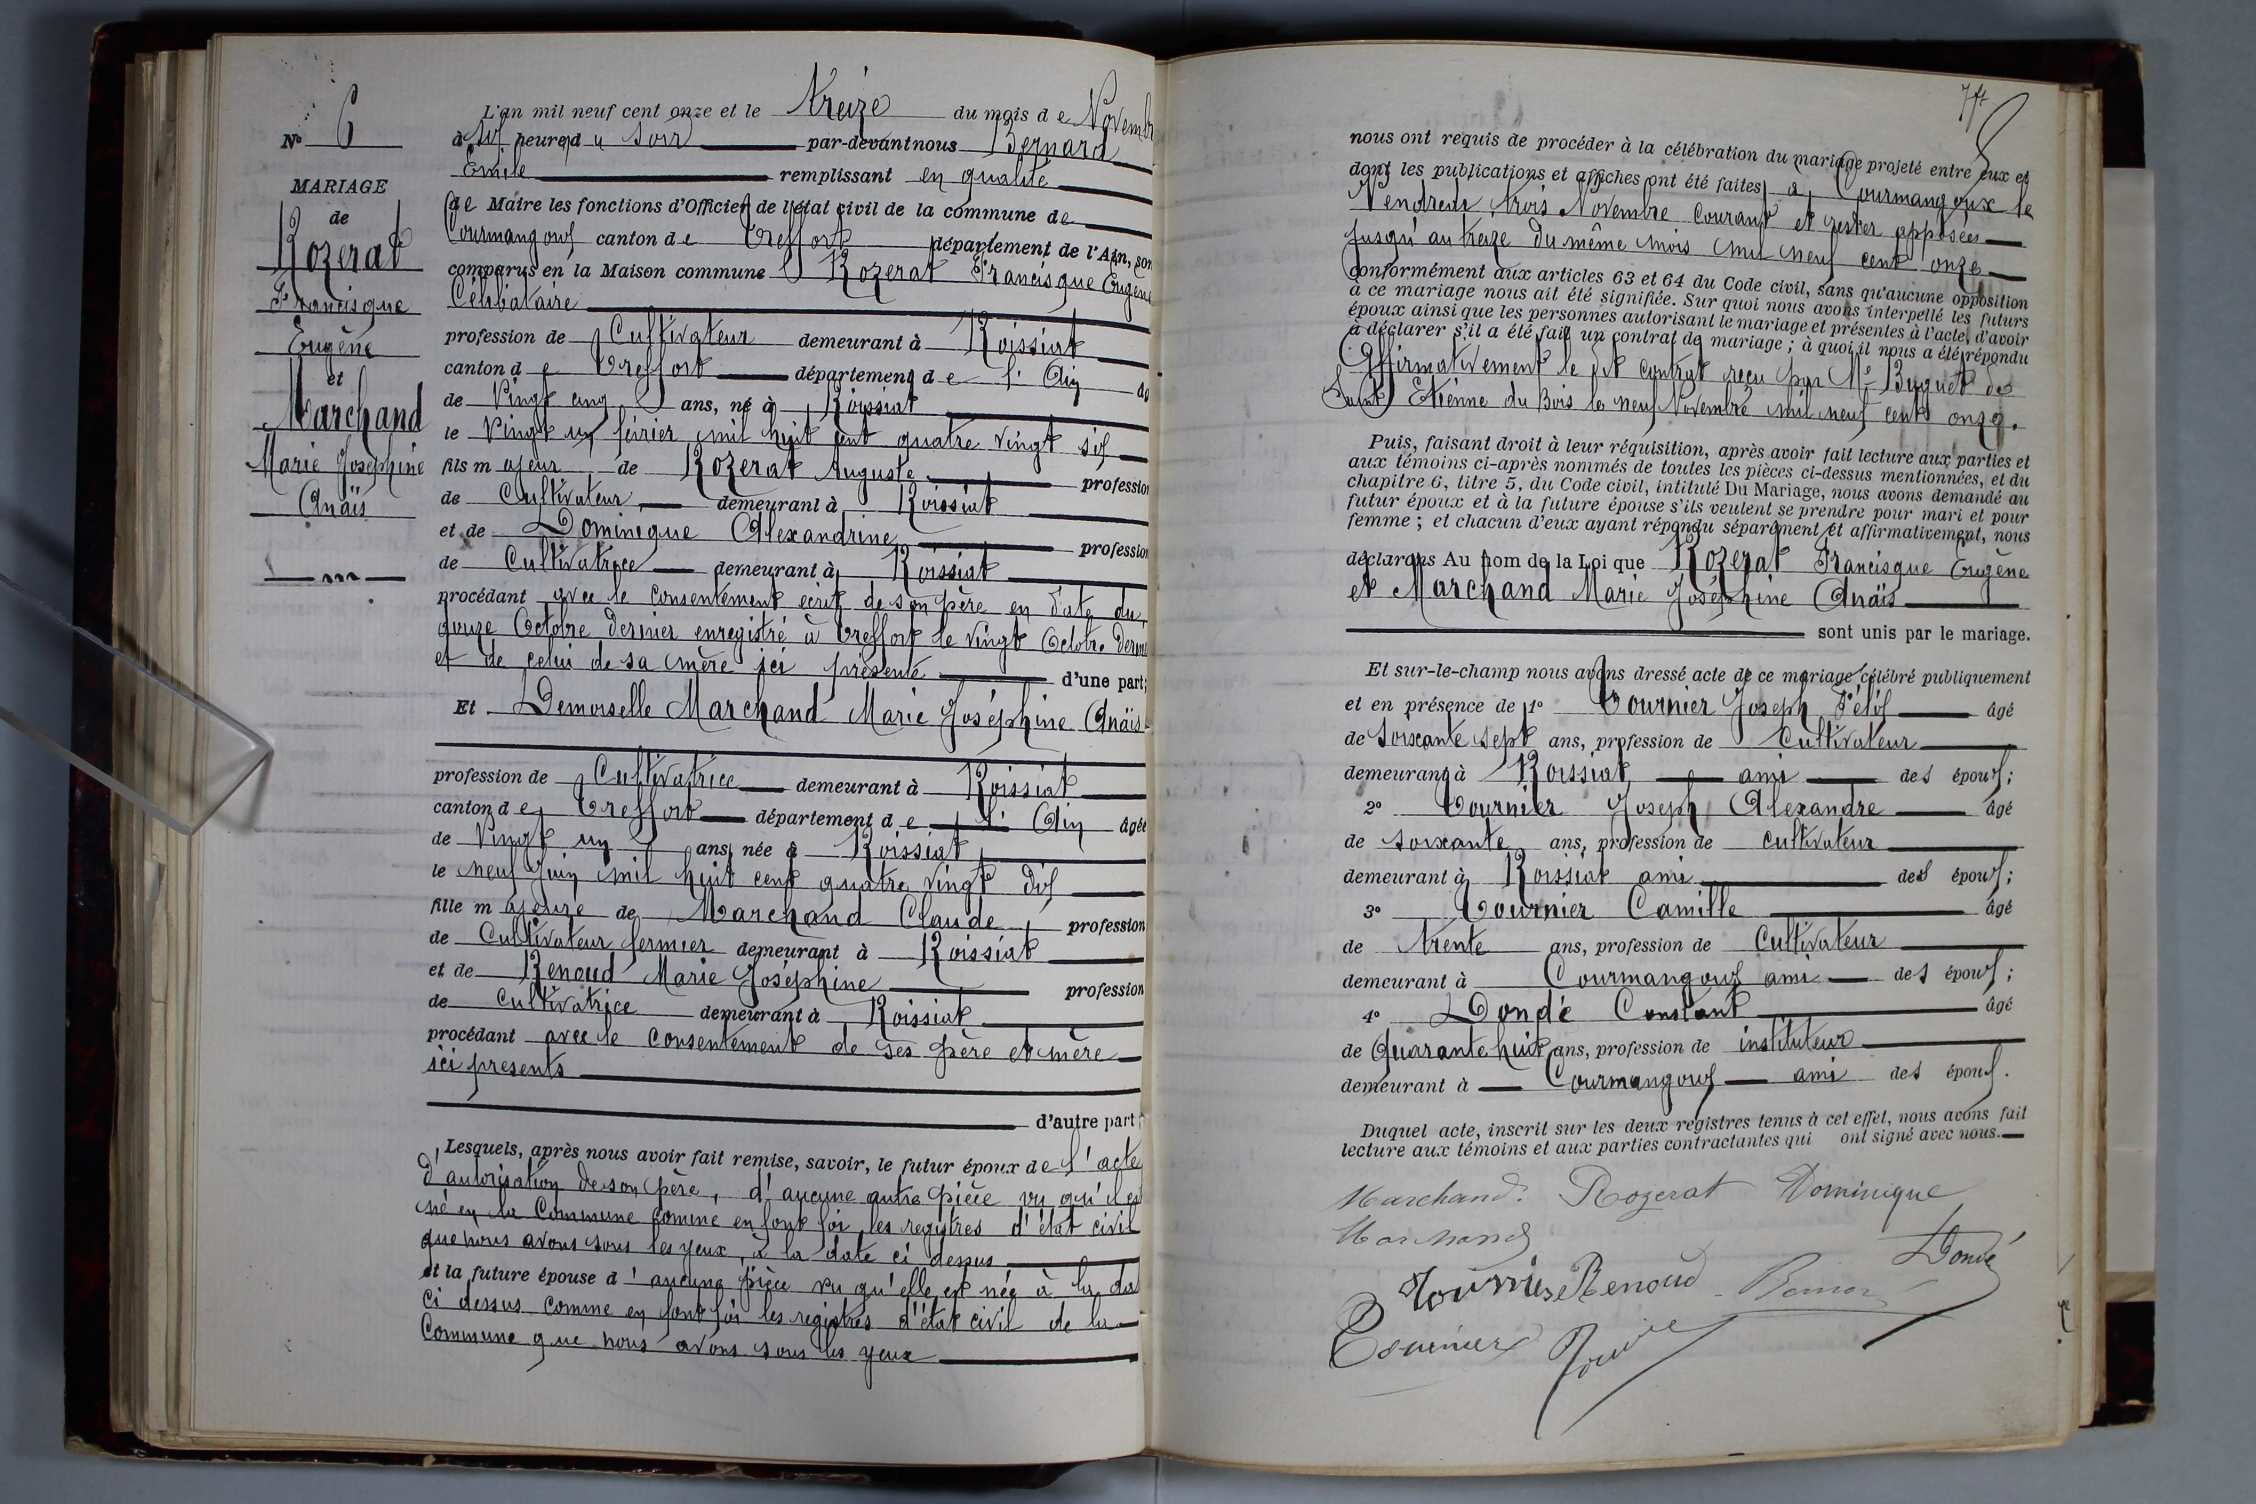 N° 6
MARIAGE
de
Rozerat
Francisque
Eugène
et
Marchand
Marie Joséphine
Anaïs
L'an mil neuf cent onze et le treize du mois de Novembre
à six heures du soir par-devant nous Bernard
Emile remplissant en qualité
de Maire les fonctions d'Officier de l'état civil de la commune de
Courmangoux canton de Treffort département de l'Ain, son
comparus en la Maison commune Rozerat Francisque Eugène
Célibataire
profession de Cultivateur demeurant à Roissiat
canton de Treffort département de l'Ain âg
de Vingt cinq ans, né à Roissiat
le Vingt un février mil huit cent quatre vingt six
fils majeur de Rozerat Auguste profession
de Cultivateur demeurant à Roissiat
et de Dominique Alexandrine profession
de Cultivatrice demeurant à Roissiat
procédant avec le consentement écrit de son père en date du
Octobre dernier enregistré à Treffort le vingt Octobre dernier
et de celui de sa mère ici présente d'une part;
Et Demoiselle Marchand Marie Joséphine Anaïs
profession de Cultivatrice demeurant à Roissiat
canton de Treffort département de l'Ain âgée
de Vingt un ans, née à Roissiat
le neuf Juin mil huit cent quatre vingt dix
fille majeure de Marchand Claude profession
de Cultivateur fermier demeurant à Roissiat
et de Renoud Marie Joséphine profession
de cultivatrice demeurant à Roissiat
procédant avec le consentement de ses père et mère
ici presents
d'autre part;
Lesquels, après nous avoir fait remise, savoir, le futur époux de l'acte
d'autorisation de son père, d'aucune autre pièce vu qu'il est
né en la Commune comme en font foi les registres d'état civil
que nous avons sous les yeux, à la date ci dessus
et la future épouse d'aucune pièce vu qu'elle est née à la da
ci dessus comme en font foi les registres d'état civil de la
Commune que nous avons sous les yeux
nous ont requis de procéder à la célébration du mariage projeté entre eux et
dont les publications et affiches ont été faites à Courmangoux le
Vendredi trois Novembre courant et rester apposées
jusqu'au treize du même mois mil neuf cent onze
conformément aux articles 63 et 64 du Code civil, sans qu'aucune opposition
à ce mariage nous ait été signifiée. Sur quoi nous avons interpellé les futurs
époux ainsi que les personnes autorisant le mariage et présentes à l'acte, d'avoir
à déclarer s'il a été fait un contrat de mariage; à quoi il nous a été répondu
Affirmativement le dit contrat reçu par Me Buguet de
Saint Etienne du Bois le neuf Novembre mil neuf cent onze.
Puis, faisant droit à leur réquisition, après avoir fait lecture aux parties et
aux témoins ci-après nommés de toutes les pièces ci-dessus mentionnées, et du
chapitre 6, titre 5, du Code civil, intitulé Du Mariage, nous avons demandé au
futur époux et à la future épouse s'ils veulent se prendre pour mari et pour
femme; et chacun d'eux ayant répondu séparément et affirmativement, nous
déclarons Au nom de la Loi que Rozerat Francisque Eugène
et Marchand Marie Joséphine Anaïs
sont unis par le mariage.
Et sur-le-champ nous avons dressé acte de ce mariage célébré publiquement
et en présence de 1° Tournier Joseph Félix âgé
de Soixante sept ans, profession de Cultivateur
demeurant à Roissiat ami des époux;
2° Tournier Joseph Alexandre âgé
de soixante ans, profession de cultivateur
demeurant à Roissiat ami des époux;
3° Tournier Camille âgé
de trente ans, profession de Cultivateur
demeurant à Courmangoux ami des époux;
4° Dondé Constant âgé
de Quarante huit ans, profession de instituteur
demeurant à Courmangoux ami des époux.
Duquel acte, inscrit sur les deux registres tenus à cet effet, nous avons fait
lecture aux témoins et aux parties contractantes qui ont signé avec nous.
Marchand Rozerat Dominique
Marchand Dondé
Tournier Renoud
Tournier